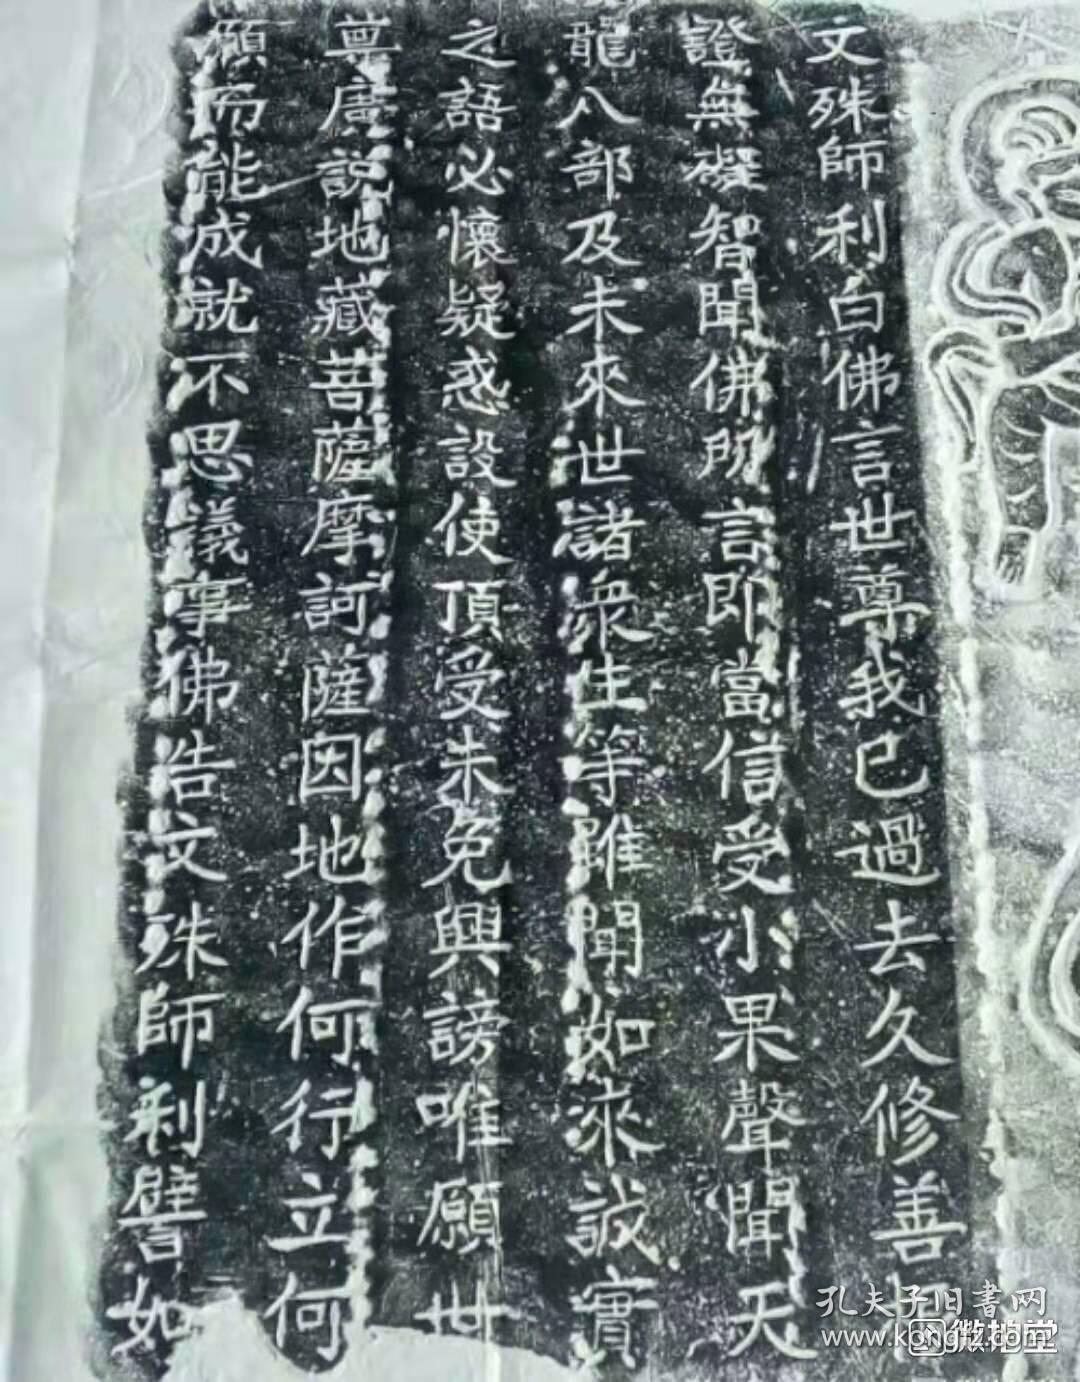 文殊師利白佛言世尊我已過去久修善
證無礙智聞佛所言即當信受小果聲聞天
龍八部及未來世諸衆生等雖聞如來誠實
之語必懷疑惑設使頂受未免興謗唯願世
尊廣說地藏菩薩摩訶薩因地作何行立何
願而能成就不思議事佛告文殊師利譬如
孔夫子旧書网
www.kongfz.com
微拍堂